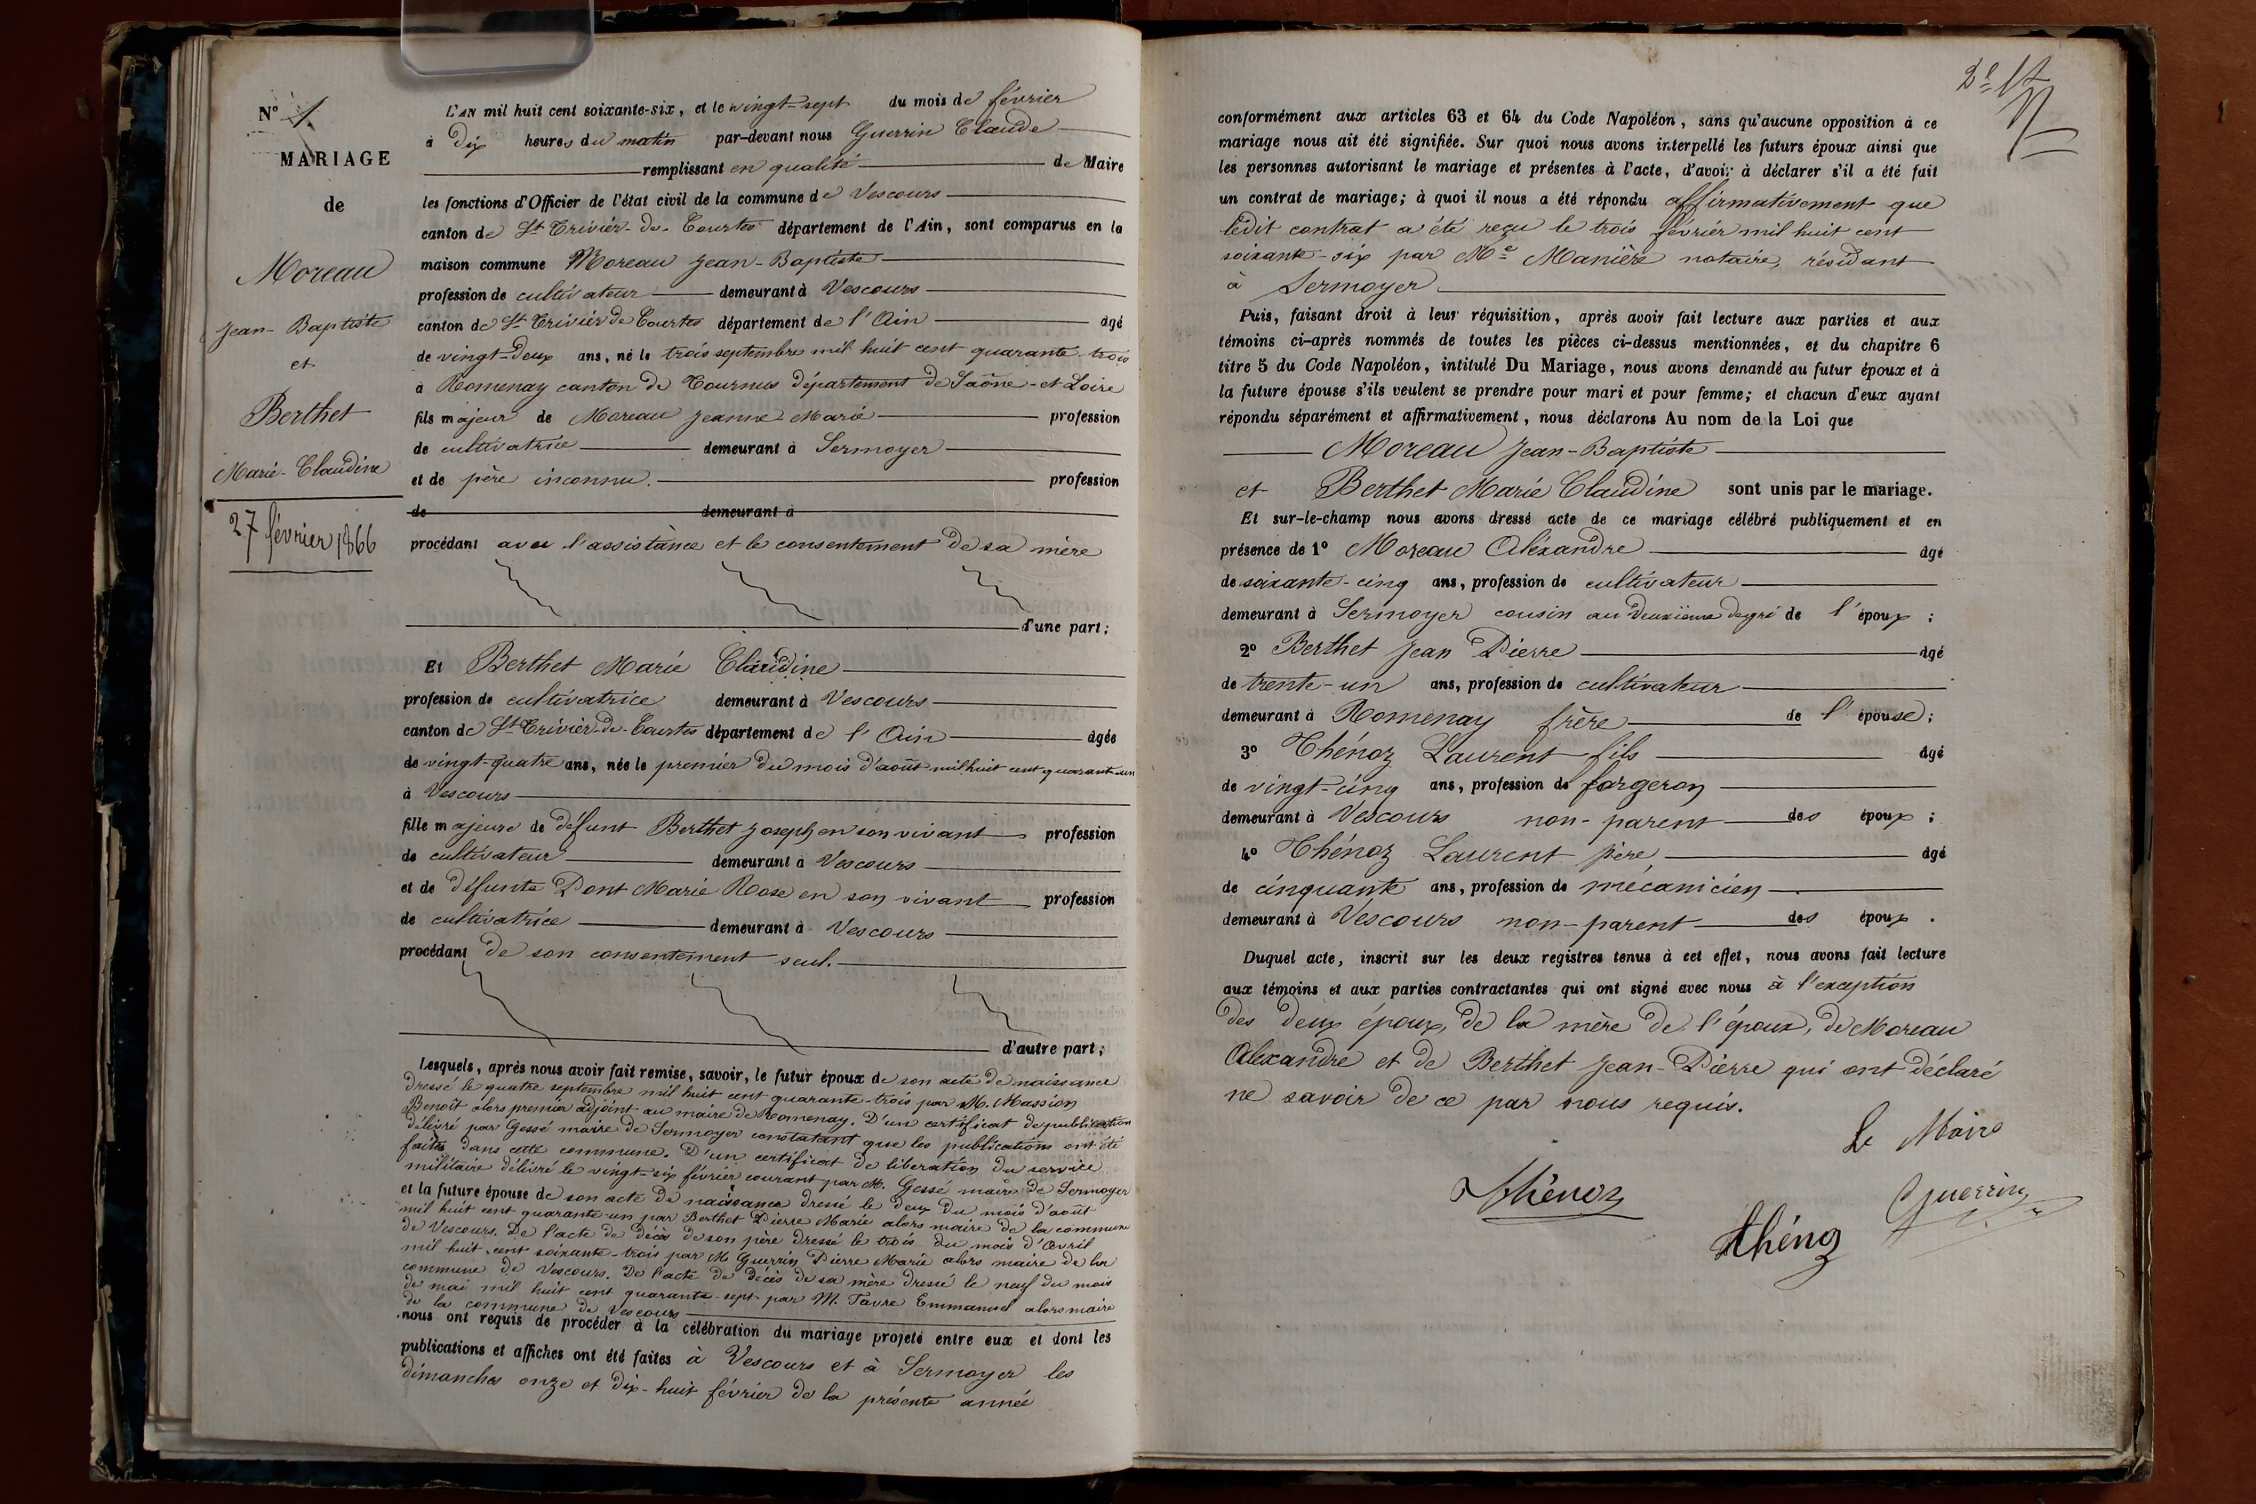 N° 1
MARIAGE
de
Moreau
Jean-Baptiste
et
Berthet
Marie-Claudine
27 février 1866
L'AN mil huit cent soixante-six, et le vingt-sept du mois de février
à dix heures du matin par-devant nous Guerrin Claude
remplissant en qualité de Maire
les fonctions d'Officier de l'état civil de la commune de Vescours
canton de St Trivier-de-Courtes département de l'Ain, sont comparus en la
maison commune Moreau Jean-Baptiste
profession de cultivateur demeurant à Vescours
canton de St Trivier de Courtes département de l'Ain âgé
de vingt-deux ans, né le trois septembre mil huit cent quarante-trois
à Romenay canton de Tournus département de Saône-et-Loire
fils majeur de Moreau Jeanne Marie profession
de cultivatrice demeurant à Sermoyer
et de père inconnu. profession
de demeurant à
procédant avec l'assistance et le consentement de sa mère
d'une part;
Et Berthet Marie Claudine
profession de cultivatrice demeurant à Vescours
canton de St Trivier-de-Courtes département de l'Ain âgée
de vingt-quatre ans, née le premier du mois d'août mil huit cent quarante-un
à Vescours
fille majeure de défunt Berthet Joseph en son vivant profession
de cultivateur demeurant à Vescours
et de défunte Pont Marie Rose en son vivant profession
de cultivatrice demeurant à Vescours
procédant de son consentement seul.
d'autre part;
Lesquels, après nous avoir fait remise, savoir, le futur époux de son acte de naissance
dressé le quatre septembre mil huit cent quarante-trois par M. Massion
Benoît alors premier adjoint au maire de Romenay. D'un certificat de publication
délivré par Gessé maire de Sermoyer constatant que les publications ont été
faites dans cette commune. D'un certificat de libération du service
militaire délivré le vingt-six février courant par M. Gessé maire de Sermoyer
et la future épouse de son acte de naissance dressé le deux du mois d'août
mil huit cent quarante-un par Berthet Pierre Marie alors maire de la commune
de Vescours. De l'acte de décès de son père dressé le trois du mois d'Avril
mil huit cent soixante-trois par M Guerrin Pierre Marie alors maire de la
commune de Vescours. De l'acte de décès de sa mère dressé le neuf du mois
de mai mil huit cent quarante-sept par M. Favre Emmanuel alors maire
de la commune de Vescours
nous ont requis de procéder à la célébration du mariage projeté entre eux et dont les
publications et affiches ont été faites à Vescours et à Sermoyer les
dimanches onze et dix-huit février de la présente année
conformément aux articles 63 et 64 du Code Napoléon, sans qu'aucune opposition à ce
mariage nous ait été signifiée. Sur quoi nous avons interpellé les futurs époux ainsi que
les personnes autorisant le mariage et présentes à l'acte, d'avoir à déclarer s'il a été fait
un contrat de mariage; à quoi il nous a été répondu affirmativement que
ledit contrat a été reçu le trois février mil huit cent
soixante-six par Me Manière notaire, résidant
à Sermoyer
Puis, faisant droit à leur réquisition, après avoir fait lecture aux parties et aux
témoins ci-après nommés de toutes les pièces ci-dessus mentionnées, et du chapitre 6
titre 5 du Code Napoléon, intitulé Du Mariage, nous avons demandé au futur époux et à
la future épouse s'ils veulent se prendre pour mari et pour femme; et chacun d'eux ayant
répondu séparément et affirmativement, nous déclarons Au nom de la Loi que
Moreau Jean-Baptiste
et Berthet Marie Claudine sont unis par le mariage.
Et sur-le-champ nous avons dressé acte de ce mariage célébré publiquement et en
présence de 1° Moreau Alexandre âgé
de soixante-cinq ans, profession de cultivateur
demeurant à Sermoyer cousin au deuxième degré de l'époux;
2° Berthet Jean Pierre âgé
de trente-un ans, profession de cultivateur
demeurant à Romenay frère de l'épouse;
3° Thénoz Laurent fils âgé
de vingt-cinq ans, profession de forgeron
demeurant à Vescours non-parent des époux;
4° Thénoz Laurent père âgé
de cinquante ans, profession de mécanicien
demeurant à Vescours non-parent des époux.
Duquel acte, inscrit sur les deux registres tenus à cet effet, nous avons fait lecture
aux témoins et aux parties contractantes qui ont signé avec nous à l'exception
des deux époux, de la mère de l'époux, de Moreau
Alexandre et de Berthet Jean-Pierre qui ont déclaré
ne savoir de ce par nous requis.
Le Maire
Thénoz
Guerrin
thénoz